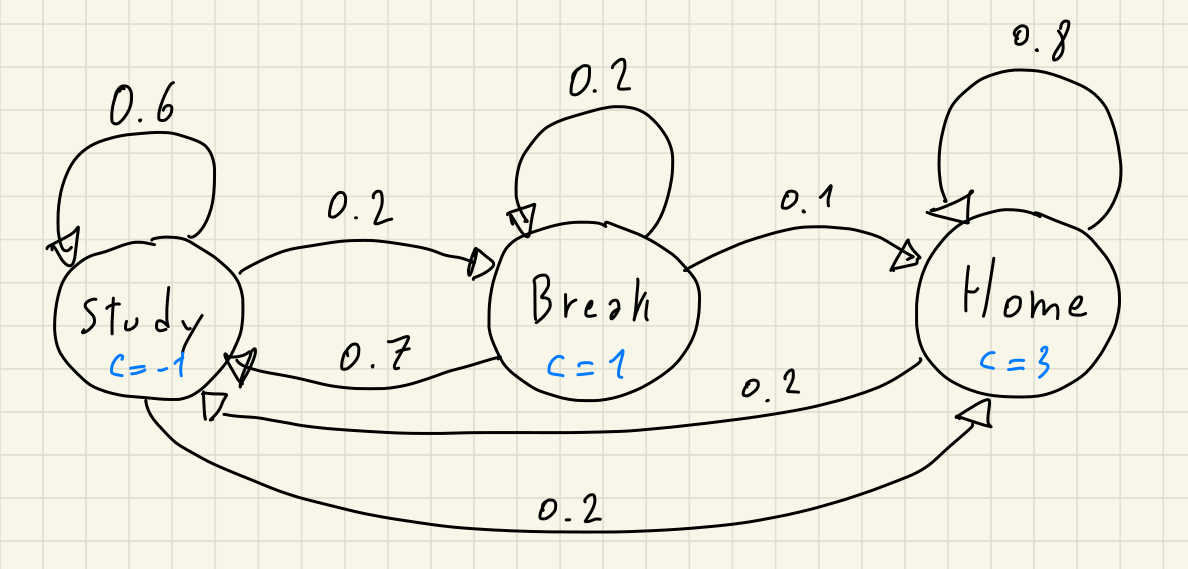 0.6
0.2
0.8
0.2
0.1
Study
C=-1
Break
C=1
Home
C=3
0.7
0.2
0.2